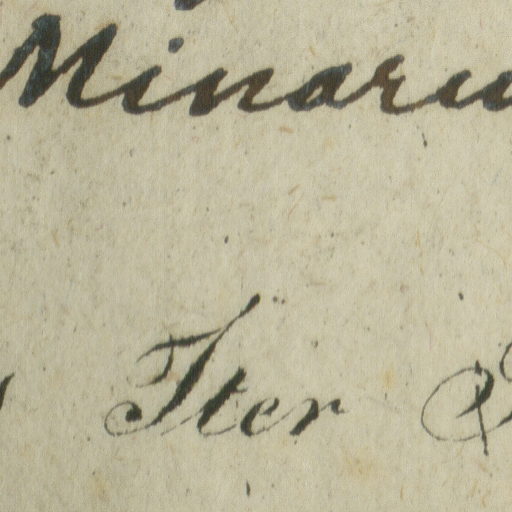 Minaru
Iter